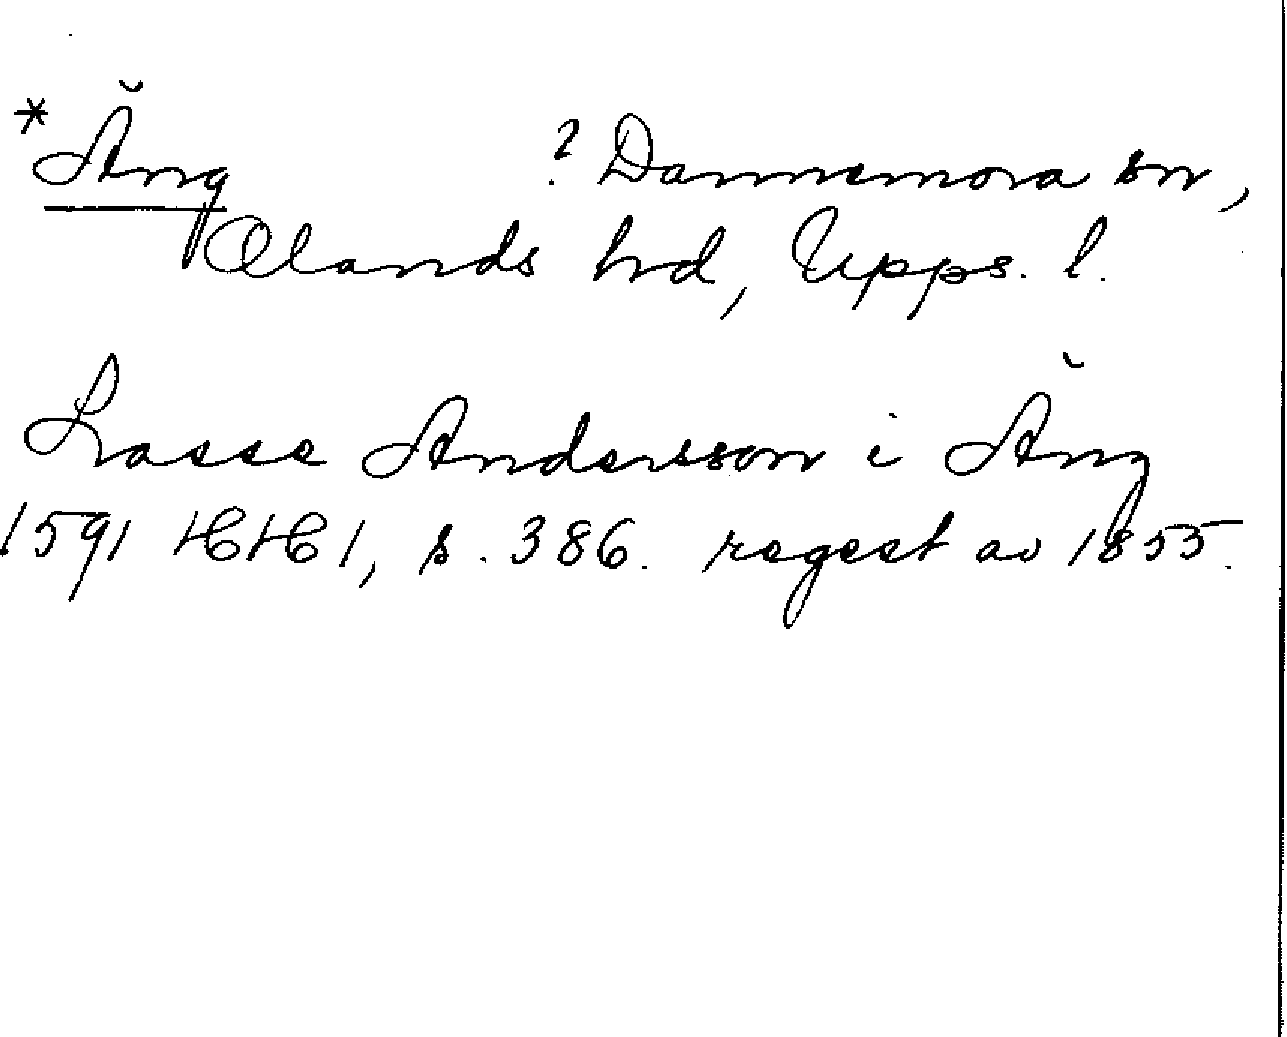 *Äng ? Dannemora sn,
Olands hd, Upps. l.
Lasse Andersson i Äng
1591 HH 1, s. 386. regest av 1855.